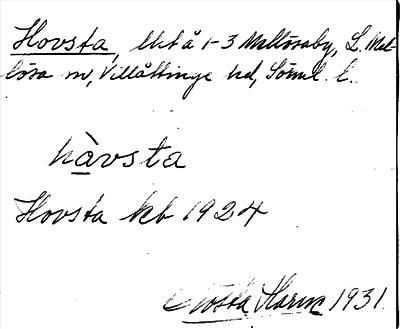 Hovsta, Utå 1-3 Mallösaby, L. Mal-
lösa sn, Villåttinge hd, Södml. l.
hàvsta
Hovsta kb 1924
Gösta Harm 1931